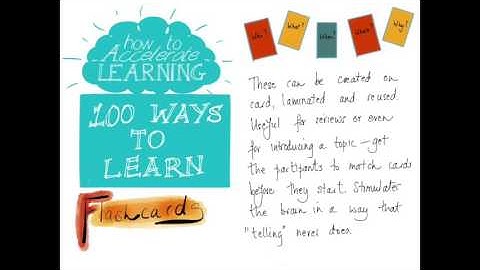 how to
Accelerate
LEARNING
100 WAYS
TO
LEARN
Flashcards
Who? What? When? Where? Why?
These can be created on
card, laminated and reused
Useful for reviews or even
for introducing a topic – get
the participants to match cards
before they start. Stimulates
the brain in a way that
"telling" never does.